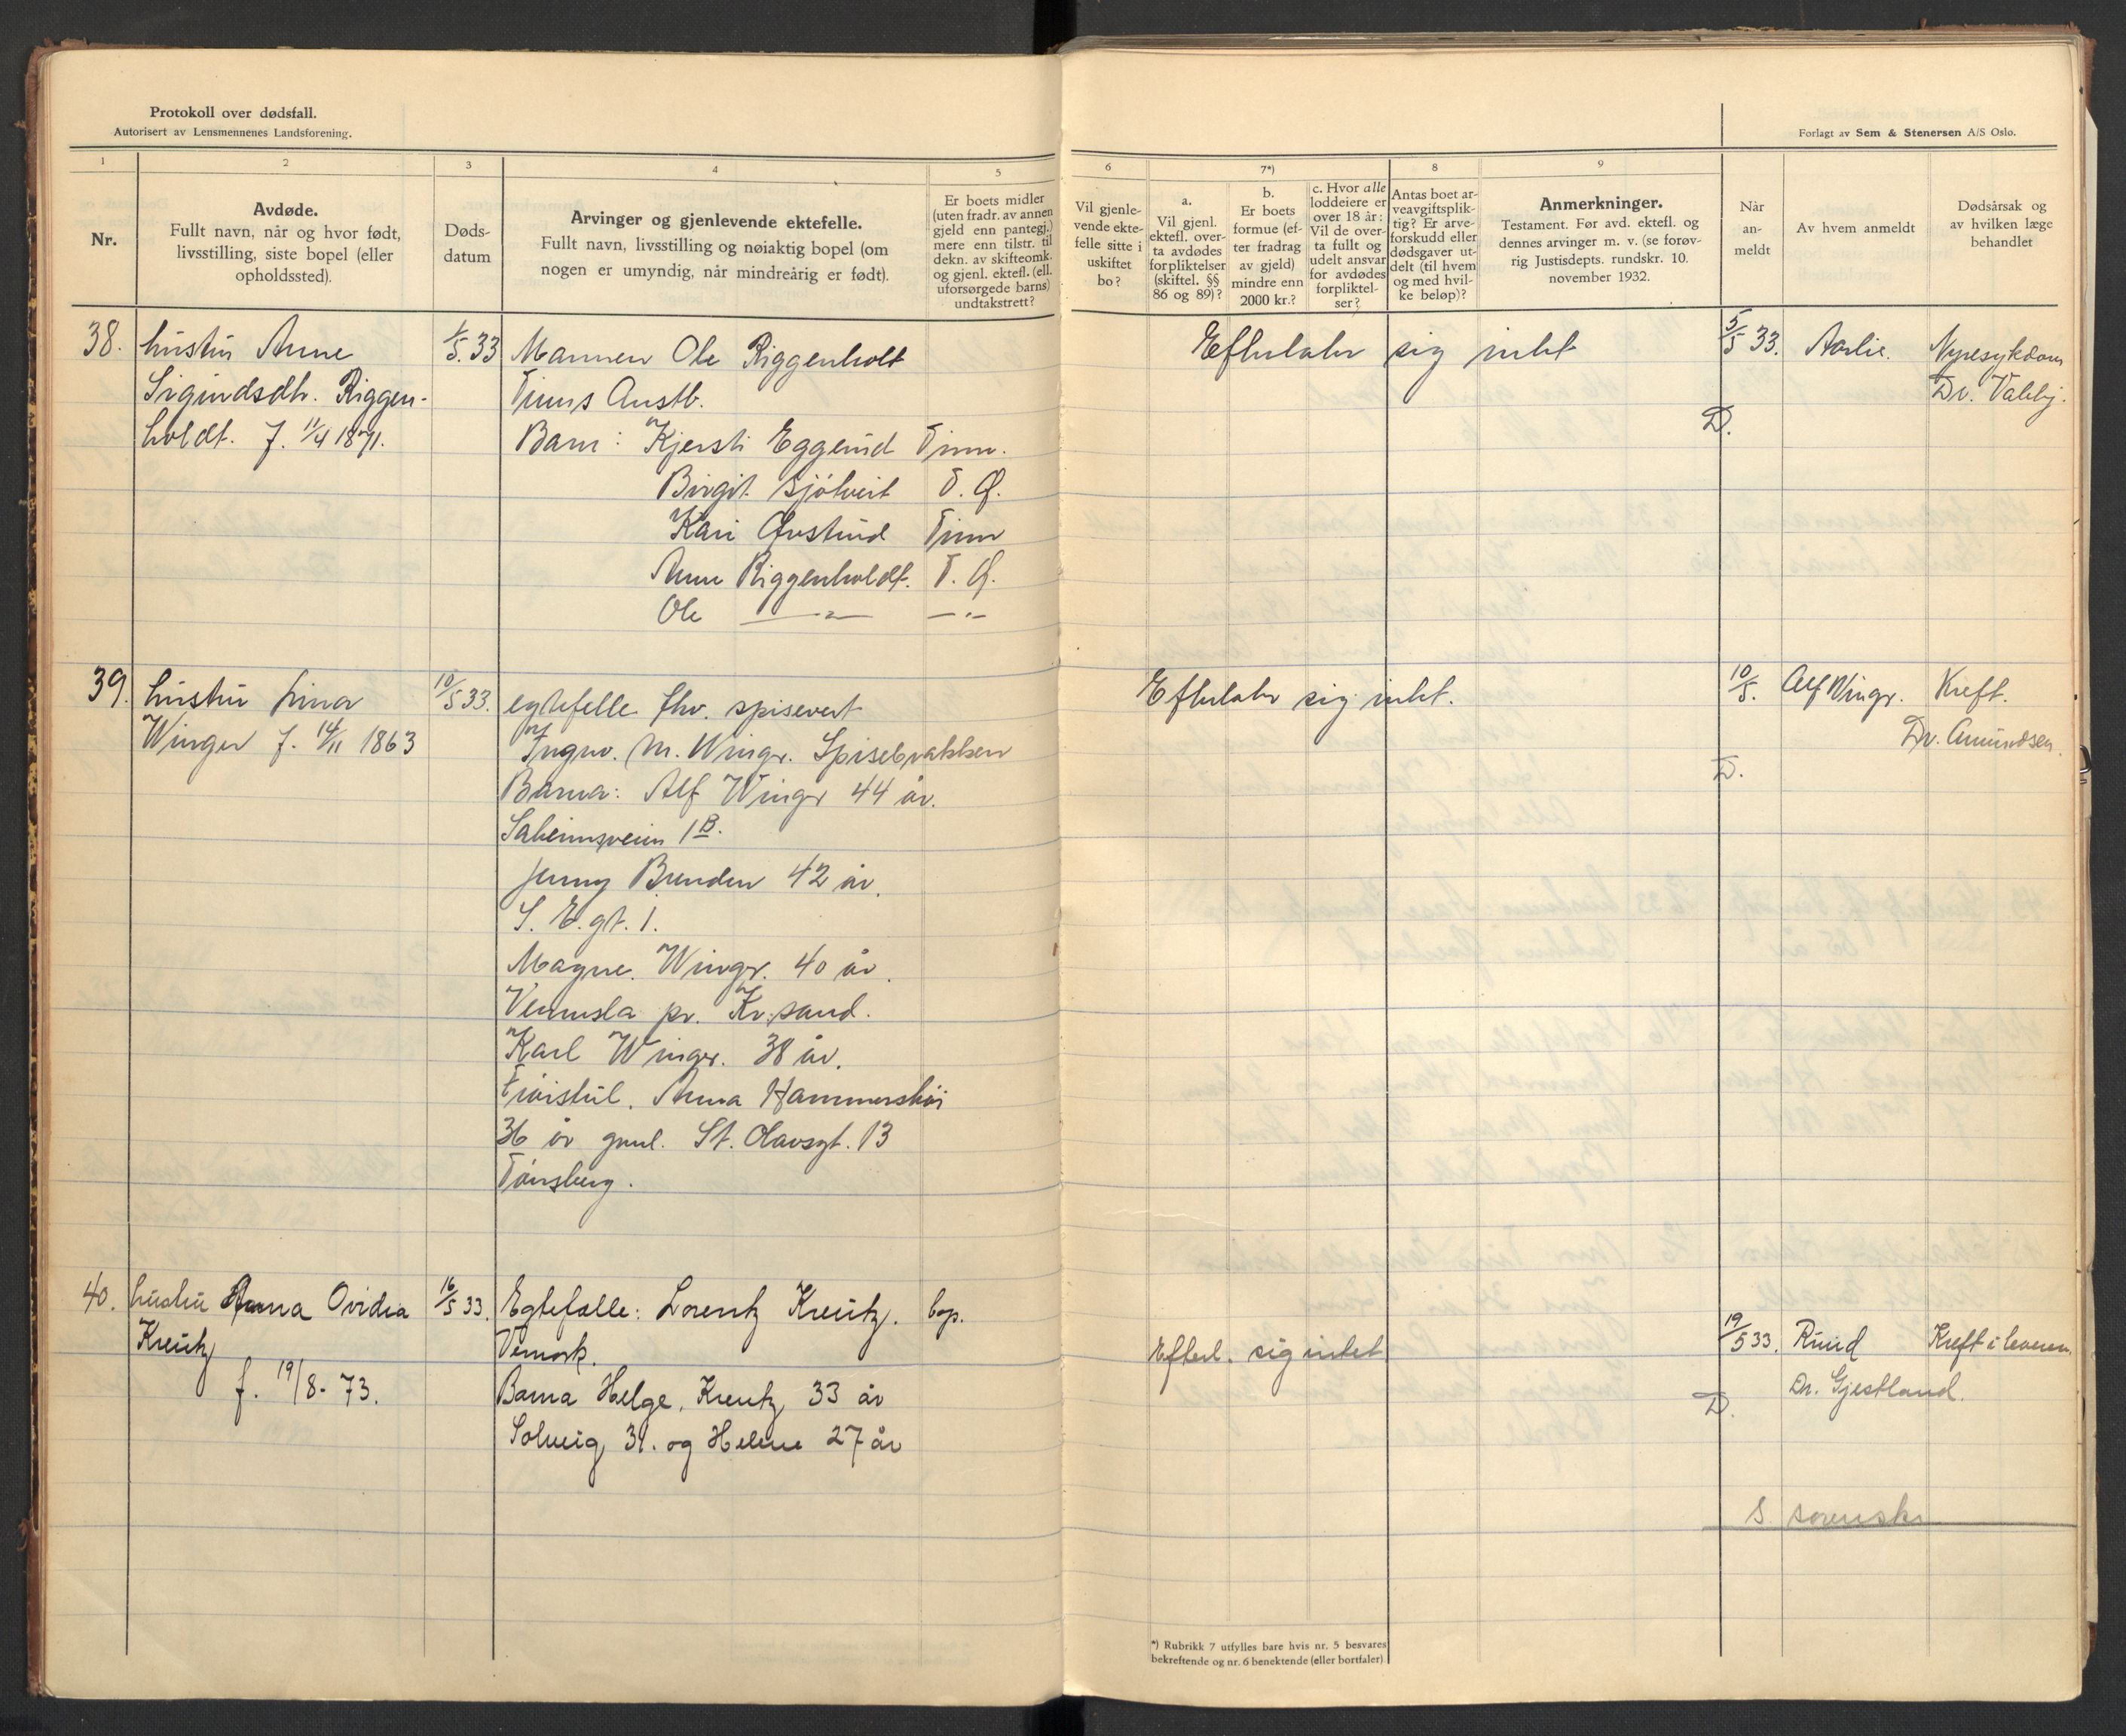 Protokoll over dødsfall.
Autorisert av Lensmennenes Landsforening.
1
2
3
4
5
Nr.
Avdøde.
Fullt navn, når og hvor født,
livsstilling, siste bopel (eller
opholdssted).
Døds-
datum
Arvinger og gjenlevende ektefelle.
Fullt navn, livsstilling og nøiaktig bopel (om
nogen er umyndig, når mindreårig er født).
Er boets midler
(uten fradr. av annen
gjeld enn pantegj.)
mere enn tilstr. til
dekn. av skifteomk.
og gjenl. ektefl. (ell.
uforsørgede barns)
undtakstrett?
38.
hustru Anne
Sigurdsdtr. Riggen-
holdt. f. 11/4 1871.
1/5. 33
Mannen Ole Riggenholt
Tinns Austb.
Barn: Kjersti Eggerud Tinn.
Birgit Sjøtveit T. A.
Kari Tinn
Anne Riggenholdt. T. A.
Ole — " — — " —
39.
hustru Lina
Winger f. 14/11 1863
10/5 33.
egtefelle fhv. spisevert
Ingv. M. Wingr. Spisebrakken
Barna: Alf Wingr 44 år.
Saheimsveien 1B.
Jenny Brenden 42 år.
S. E. gt. 1.
Magne Wingr. 40 år.
Vennsla pr. Kr.sand.
Karl Winger. 38 år.
Frøistul. Anna Hammershøi
36 år gml. St. Olavsgt. 13
Tønsberg.
40.
hustru Anna Ovidia
Kreutz
f. 19/8-73.
16/5 33.
Egtefælle: Lorentz Kreutz. bop.
Vemork.
Barna Helge, Kreutz, 33 år
Solveig, 31. og Helene 27 år
Forlagt av Sem & Stenersen A/S Oslo.
6
7*)
8
9
Vil gjenle-
vende ekte-
felle sitte i
uskiftet
bo?
a.
Vil gjenl.
ektefl. over-
ta avdødes
forpliktelser
(skiftel. §§
86 og 89)?
b.
Er boets
formue (ef-
ter fradrag
av gjeld)
mindre enn
2000 kr.?
c. Hvor alle
loddeiere er
over 18 år:
Vil de over-
ta fullt og
udelt ansvar
for avdødes
forpliktel-
ser?
Antas boet ar-
veavgiftsplik-
tig? Er arve-
forskudd eller
dødsgaver ut-
delt (til hvem
og med hvil-
ke beløp)?
Anmerkninger.
Testament. Før avd. ektefl. og
dennes arvinger m. v. (se forøv-
rig Justisdepts. rundskr. 10.
november 1932.
Når
an-
meldt
Av hvem anmeldt
Dødsårsak og
av hvilken læge
behandlet
Efterlater sig intet
5/5 33.
Aarlie.
Nyresykdom
Dr. Valeby.
D.
Efterlater sig intet.
10/5.
Alf Wingr.
Kreft.
Dr. Amundsen.
D.
Efterl. sig intet
19/5 33.
Ruud
Kreft i leveren.
Dr. Gjestland.
D.
S. sorensk.
*) Rubrikk 7 utfylles bare hvis nr. 5 besvares
bekreftende og nr. 6 benektende (eller bortfaler)